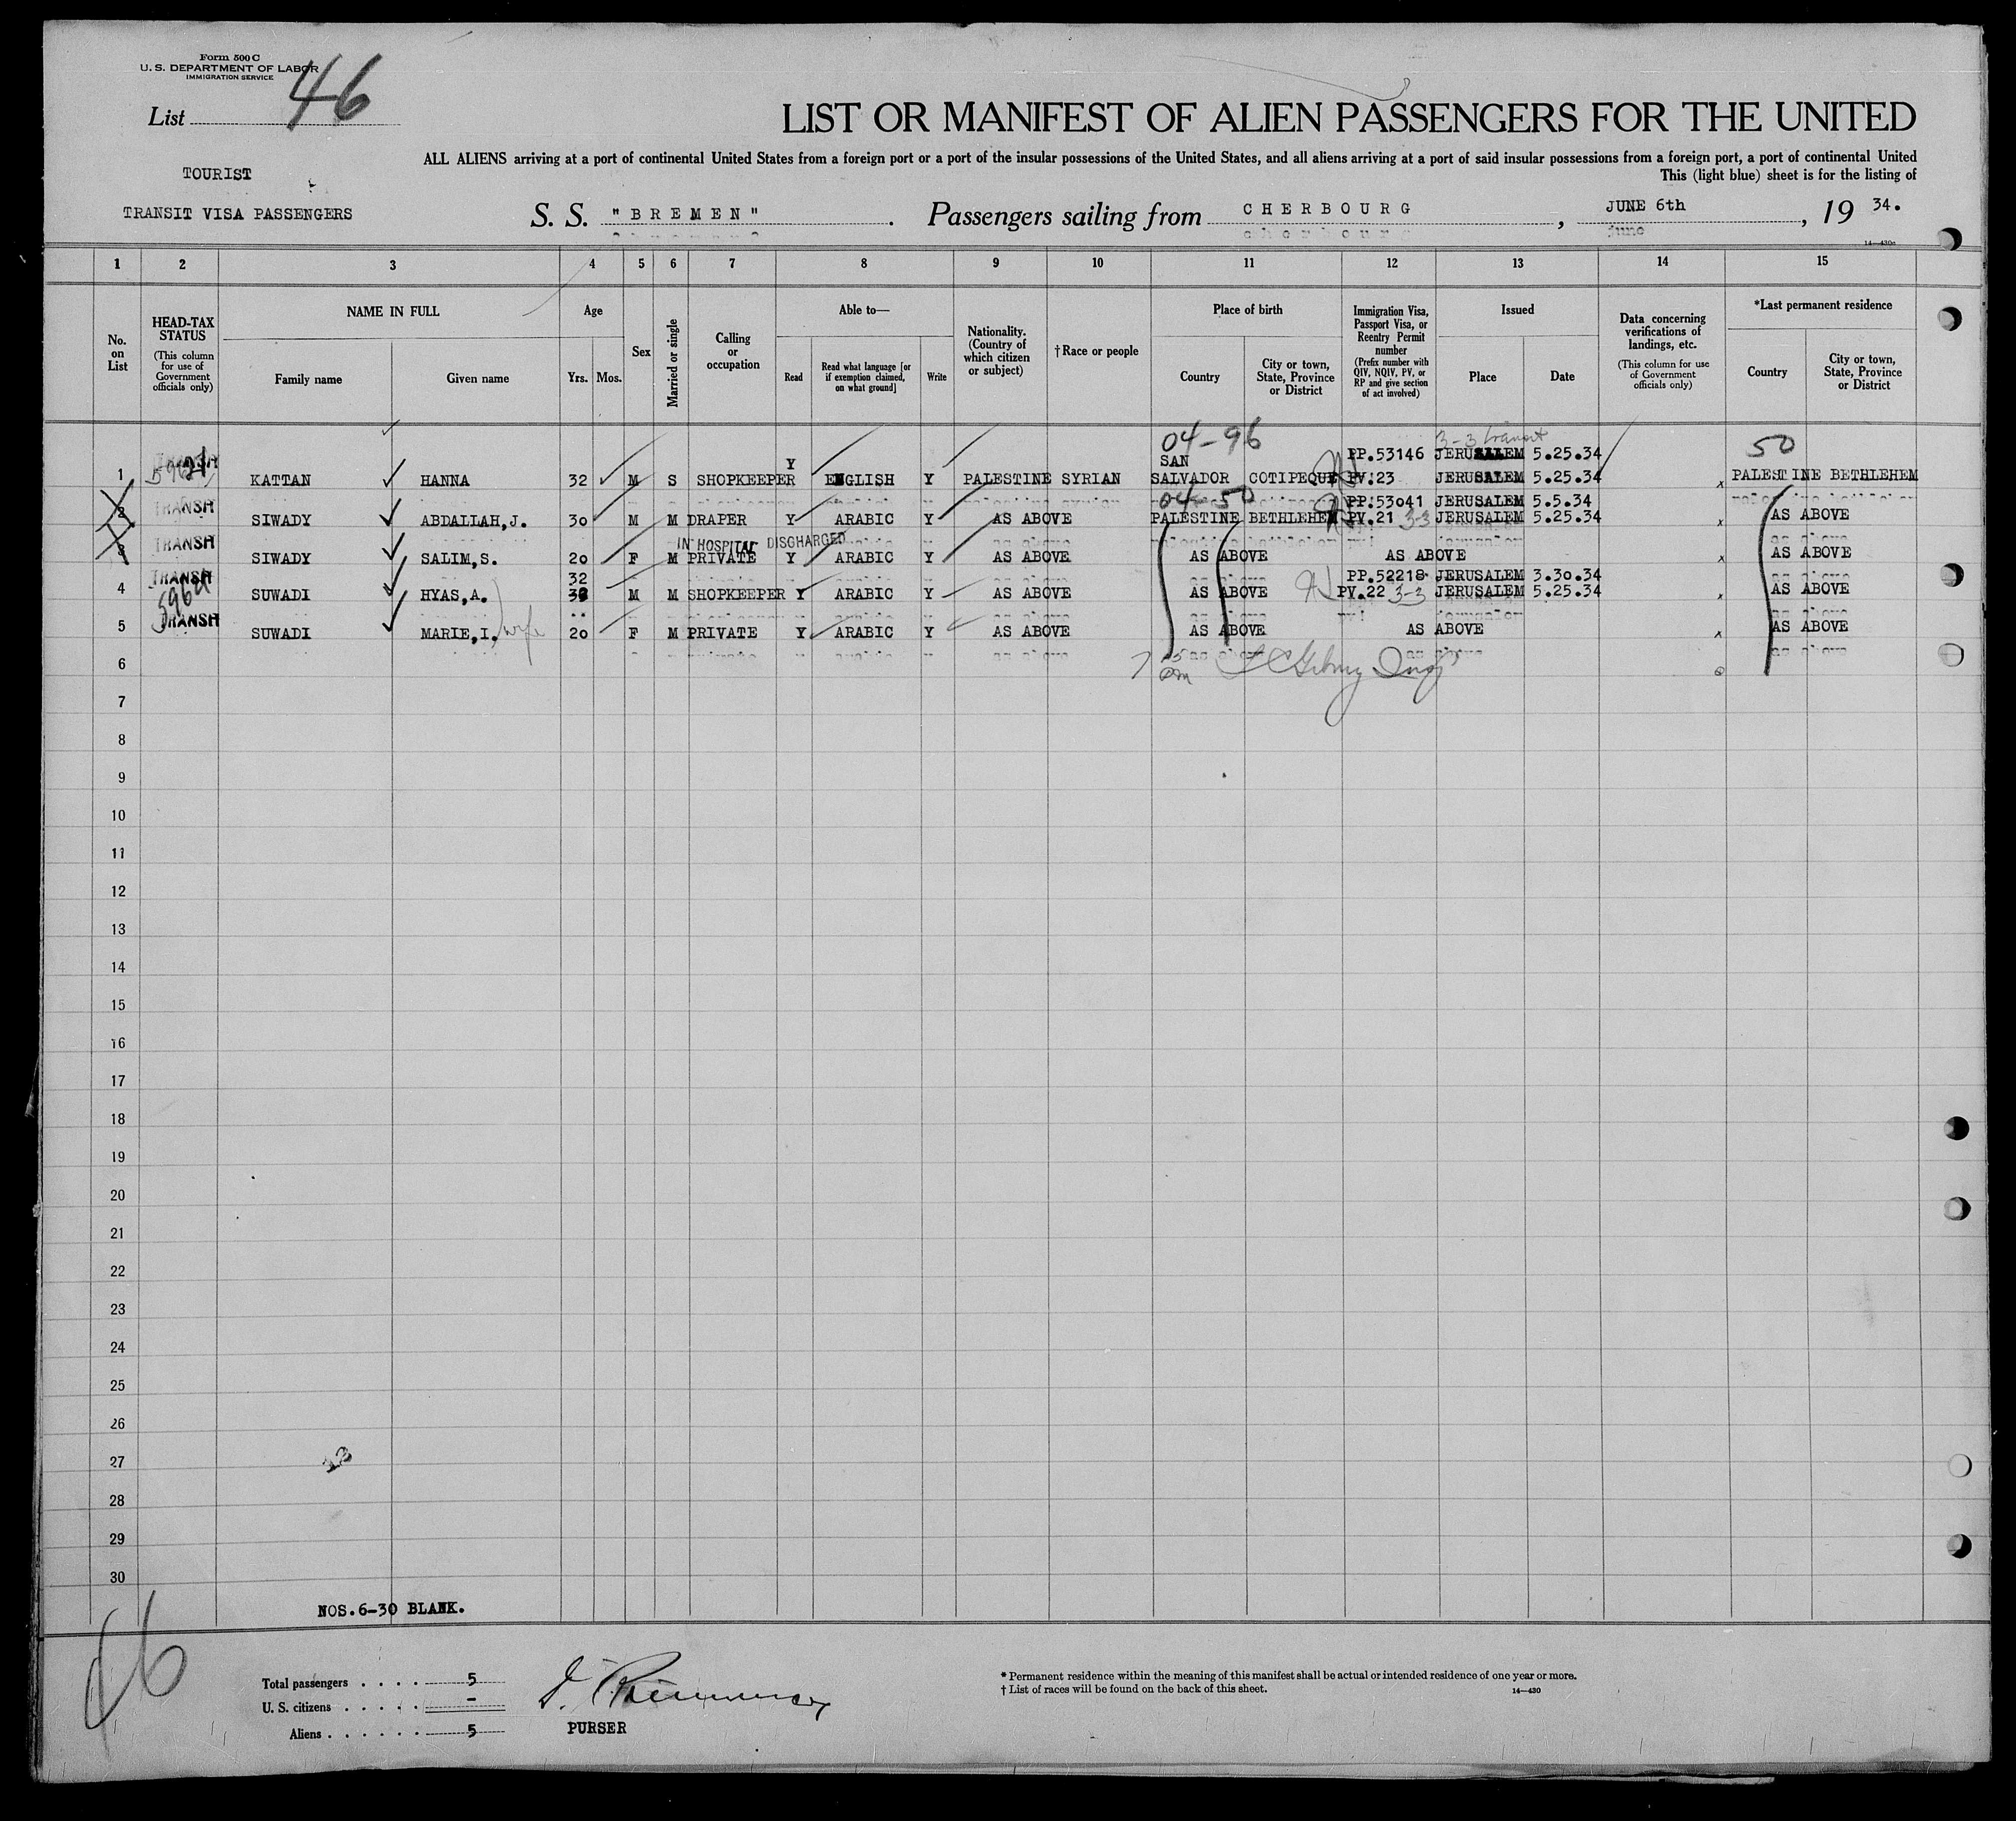 Form 500 C
U. S. DEPARTMENT OF LABOR
IMMIGRATION SERVICE
List 46
LIST OR MANIFEST OF ALIEN PASSENGERS FOR THE UNITED
ALL ALIENS arriving at a port of continental United States from a foreign port or a port of the insular possessions of the United States, and all aliens arriving at a port of said insular possessions from a foreign port, a port of continental United
This (light blue) sheet is for the listing of
TOURIST
TRANSIT VISA PASSENGERS
S. S. "BREMEN". Passengers sailing from CHERBOURG, JUNE 6th, 19 34.
14—430a
1 2 3 4 5 6 7 8 9 10 11 12 13 14 15
No. on List
HEAD-TAX STATUS (This column for use of Government officials only)
NAME IN FULL
Family name
Given name
Age
Yrs. Mos.
Sex
Married or single
Calling or occupation
Able to—
Read
Read what language [or if exemption claimed, on what ground]
Write
Nationality. (Country of which citizen or subject)
†Race or people
Place of birth
Country
City or town, State, Province or District
Immigration Visa, Passport Visa, or Reentry Permit number (Prefix number with QIV, NQIV, PV, or RP and give section of act involved)
Issued
Place
Date
Data concerning verifications of landings, etc. (This column for use of Government officials only)
*Last permanent residence
Country
City or town, State, Province or District
04-96 3-3 transit 50
Y SAN PP.53146 JERUSALEM 5.25.34
1 KATTAN HANNA 32 M S SHOPKEEPER ENGLISH Y PALESTINE SYRIAN SALVADOR COTIPEQUE PV.23 JERUSALEM 5.25.34 x PALESTINE BETHLEHEM
TRANSIT 04-50 PP.53041 JERUSALEM 5.5.34
2 SIWADY ABDALLAH,J. 30 M M DRAPER Y ARABIC Y AS ABOVE PALESTINE BETHLEHEM PV.21 3-3 JERUSALEM 5.25.34 x AS ABOVE
TRANSIT IN HOSPITAL DISCHARGED
3 SIWADY SALIM,S. 20 F M PRIVATE Y ARABIC Y AS ABOVE AS ABOVE AS ABOVE x AS ABOVE
TRANSIT 32 PP.52218 JERUSALEM 3.30.34
4 SUWADI HYAS,A. M M SHOPKEEPER Y ARABIC Y AS ABOVE AS ABOVE PV.22 3-3 JERUSALEM 5.25.34 x AS ABOVE
TRANSIT
5 SUWADI MARIE,I. wife 20 F M PRIVATE Y ARABIC Y AS ABOVE AS ABOVE AS ABOVE x AS ABOVE
6
7
8
9
10
11
12
13
14
15
16
17
18
19
20
21
22
23
24
25
26
27
28
29
30
NOS.6-30 BLANK.
46
Total passengers . . . . 5
U. S. citizens . . . . . -
Aliens . . . . . . 5
PURSER
* Permanent residence within the meaning of this manifest shall be actual or intended residence of one year or more.
† List of races will be found on the back of this sheet.
14—430